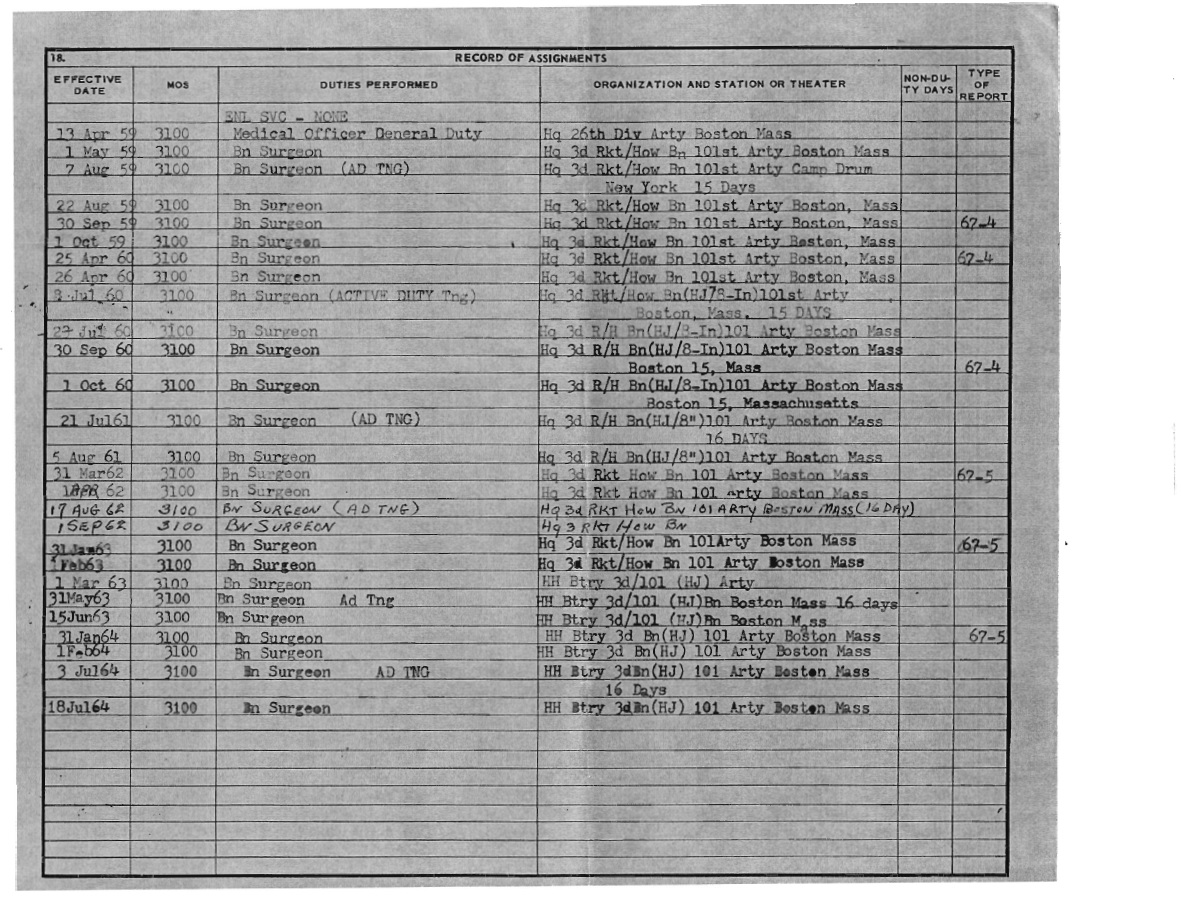 18. RECORD OF ASSIGNMENTS
EFFECTIVE DATE MOS DUTIES PERFORMED ORGANIZATION AND STATION OR THEATER NON-DU-TY DAYS TYPE OF REPORT
ENL SVC - NONE
13 Apr 59 3100 Medical Officer General Duty Hq 26th Div Arty Boston Mass
1 May 59 3100 Bn Surgeon Hq 3d Rkt/How Bn 101st Arty Boston Mass
7 Aug 59 3100 Bn Surgeon (AD TNG) Hq 3d Rkt/How Bn 101st Arty Camp Drum
New York 15 Days
22 Aug 59 3100 Bn Surgeon Hq 3d Rkt/How Bn 101st Arty Boston, Mass
30 Sep 59 3100 Bn Surgeon Hq 3d Rkt/How Bn 101st Arty Boston, Mass 67-4
1 Oct 59 3100 Bn Surgeon Hq 3d Rkt/How Bn 101st Arty Boston, Mass
25 Apr 60 3100 Bn Surgeon Hq 3d Rkt/How Bn 101st Arty Boston, Mass 67-4
26 Apr 60 3100 Bn Surgeon Hq 3d Rkt/How Bn 101st Arty Boston, Mass
Jul 60 3100 Bn Surgeon (ACTIVE DUTY Tng) Hq 3d Rkt/How Bn(HJ78-In)101st Arty
Boston, Mass. 15 DAYS
Jul 60 3100 Bn Surgeon Hq 3d R/H Bn(HJ/8-In)101 Arty Boston Mass
30 Sep 60 3100 Bn Surgeon Hq 3d R/H Bn(HJ/8-In)101 Arty Boston Mass
Boston 15, Mass 67-4
1 Oct 60 3100 Bn Surgeon Hq 3d R/H Bn(HJ/8-In)101 Arty Boston Mass
Boston 15, Massachusetts
21 Jul61 3100 Bn Surgeon (AD TNG) Hq 3d R/H Bn(HJ/8")101 Arty Boston Mass
16 DAYS
5 Aug 61 3100 Bn Surgeon Hq 3d R/H Bn(HJ/8")101 Arty Boston Mass
31 Mar62 3100 Bn Surgeon Hq 3d Rkt How Bn 101 Arty Boston Mass 67-5
1APR 62 3100 Bn Surgeon Hq 3d Rkt How Bn 101 Arty Boston Mass
17 AUG 62 3100 BN SURGEON (AD TNG) Hq 3d RKT How BN 101 ARTY BOSTON MASS (16 DAY)
1 SEP 62 3100 BN SURGEON Hq 3 RKT How BN
31Jan63 3100 Bn Surgeon Hq 3d Rkt/How Bn 101Arty Boston Mass 67-5
1Feb63 3100 Bn Surgeon Hq 3d Rkt/How Bn 101 Arty Boston Mass
1 Mar 63 3100 Bn Surgeon HH Btry 3d/101 (HJ) Arty
31May63 3100 Bn Surgeon Ad Tng HH Btry 3d/101 (HJ)Bn Boston Mass 16 days
15Jun63 3100 Bn Surgeon HH Btry 3d/101 (HJ)Bn Boston Mass
31Jan64 3100 Bn Surgeon HH Btry 3d Bn(HJ) 101 Arty Boston Mass 67-5
1Feb64 3100 Bn Surgeon HH Btry 3d Bn(HJ) 101 Arty Boston Mass
3 Jul64 3100 Bn Surgeon AD TNG HH Btry 3dBn(HJ) 101 Arty Boston Mass
16 Days
18Jul64 3100 Bn Surgeon HH Btry 3dBn(HJ) 101 Arty Boston Mass